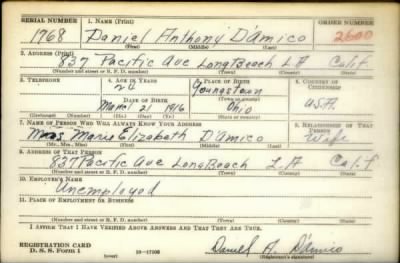 SERIAL NUMBER 1. NAME (Print) ORDER NUMBER
1768 Daniel Anthony D'Amico 2600
(First) (Middle) (Last)
2. ADDRESS (Print)
837 Pacific Ave Long Beach LA Calif.
(Number and street or R. F. D. number) (Town) (County) (State)
3. TELEPHONE 4. AGE IN YEARS 5. PLACE OF BIRTH 6. COUNTRY OF CITIZENSHIP
24 Youngstown
DATE OF BIRTH (Town or county)
March 21 1916 Ohio U.S.A.
(Exchange) (Number) (Mo.) (Day) (Yr.) (State or country)
7. NAME OF PERSON WHO WILL ALWAYS KNOW YOUR ADDRESS 8. RELATIONSHIP OF THAT PERSON
Mrs. Marie Elizabeth D'Amico Wife
(Mr., Mrs., Miss) (First) (Middle) (Last)
9. ADDRESS OF THAT PERSON
837 Pacific Ave Long Beach LA Calif
(Number and street or R. F. D. number) (Town) (County) (State)
10. EMPLOYER'S NAME
Unemployed
11. PLACE OF EMPLOYMENT OR BUSINESS
(Number and street or R. F. D. number) (Town) (County) (State)
I AFFIRM THAT I HAVE VERIFIED ABOVE ANSWERS AND THAT THEY ARE TRUE.
REGISTRATION CARD
D. S. S. Form 1 (over) Daniel A. D'Amico
(Registrant's signature)